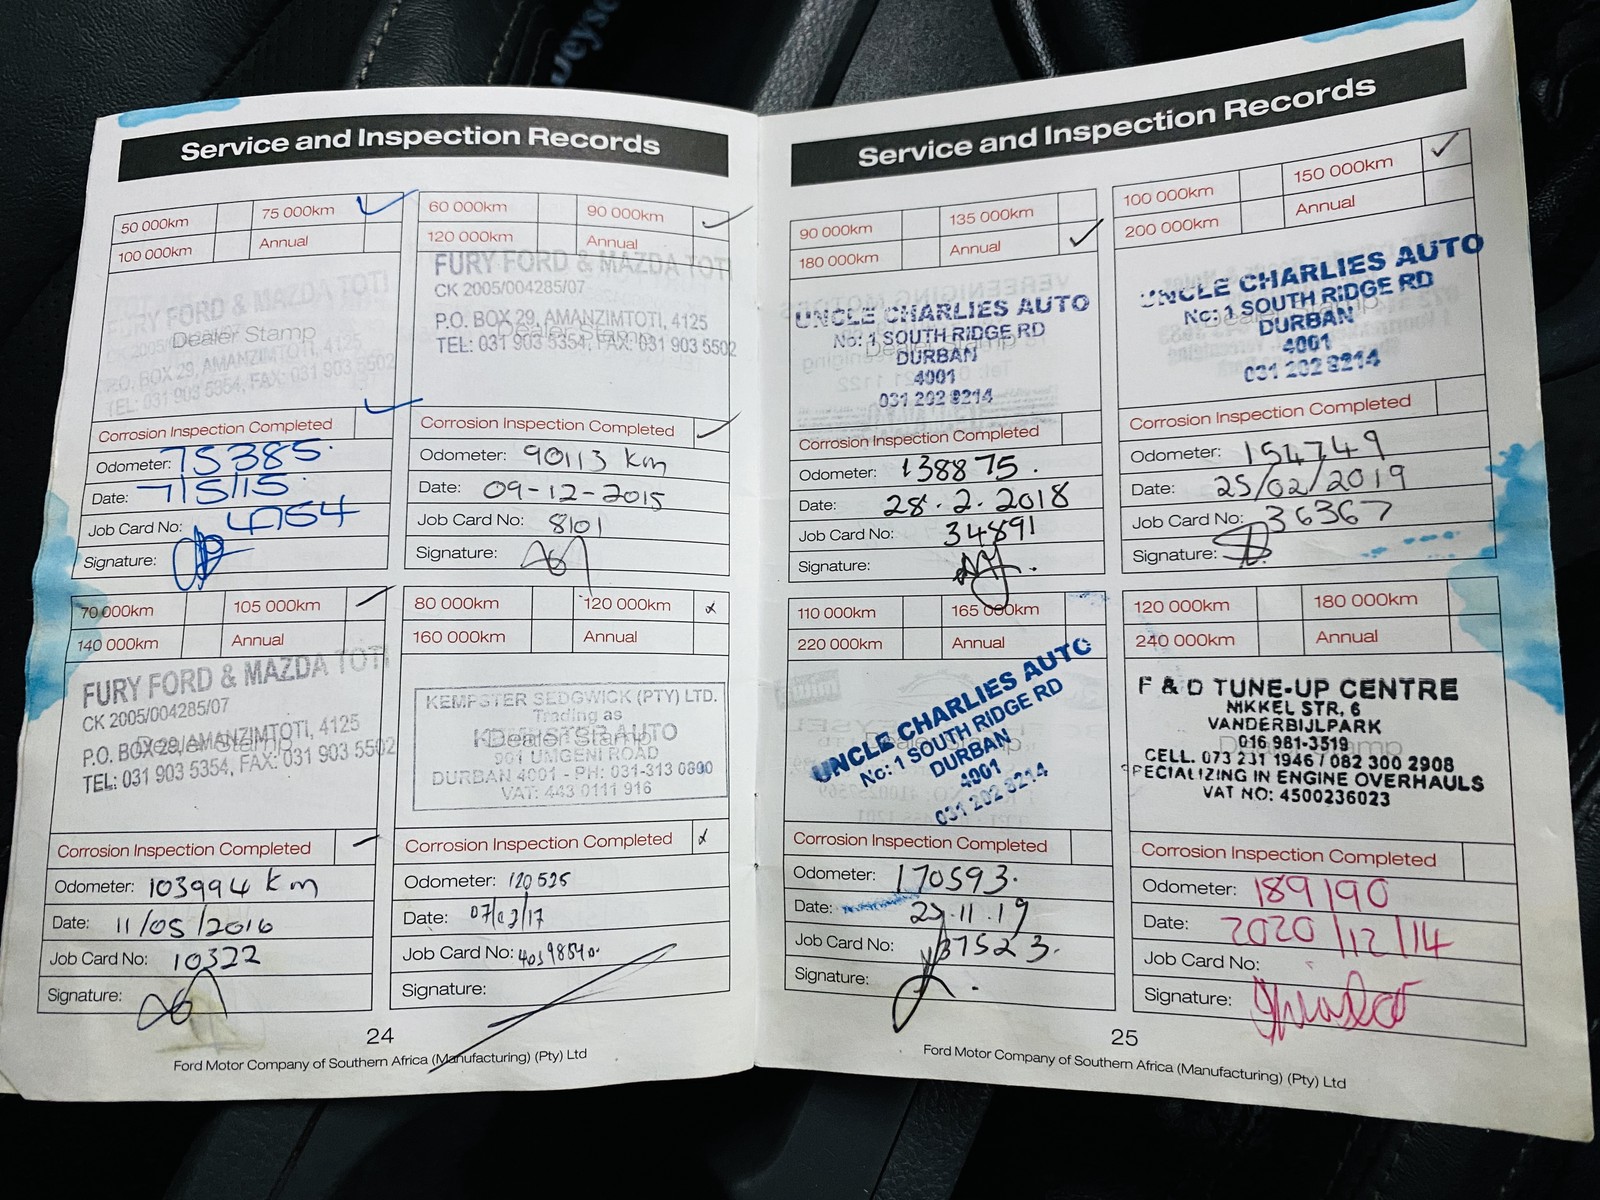 Service and Inspection Records
50 000km
75 000km
100 000km
Annual
FURY FORD & MAZDA TOTI
Dealer Stamp
P.O. BOX 29, AMANZIMTOTI, 4125
TEL: 031 903 5354, FAX: 031 903 5502
Corrosion Inspection Completed
Odometer: 75385.
Date: 7/5/15.
Job Card No:
Signature:
60 000km
90 000km
120 000km
Annual
FURY FORD & MAZDA TOTI
CK 2005/004285/07
P.O. BOX 29, AMANZIMTOTI, 4125
TEL: 031 903 5354, FAX: 031 903 5502
Corrosion Inspection Completed
Odometer: 90113 km
Date: 09-12-2015
Job Card No: 8101
Signature:
70 000km
105 000km
140 000km
Annual
FURY FORD & MAZDA TOTI
CK 2005/004285/07
P.O. BOX 29, AMANZIMTOTI, 4125
TEL: 031 903 5354, FAX: 031 903 5502
Corrosion Inspection Completed
Odometer: 103994 km
Date: 11/05/2016
Job Card No: 10322
Signature:
80 000km
120 000km
160 000km
Annual
KEMPSTER SEDGWICK (PTY) LTD.
Trading as
KEMPSTER AUTO
Dealer Stamp
901 UMGENI ROAD
DURBAN 4001 - PH: 031-313 0800
VAT: 443 0111 916
Corrosion Inspection Completed
Odometer: 120525
Date:
Job Card No:
Signature:
24
Ford Motor Company of Southern Africa (Manufacturing) (Pty) Ltd
Service and Inspection Records
90 000km
135 000km
180 000km
Annual
UNCLE CHARLIES AUTO
No: 1 SOUTH RIDGE RD
DURBAN
4001
031 202 8214
Corrosion Inspection Completed
Odometer: 138875.
Date: 28.2.2018
Job Card No: 34891
Signature:
100 000km
150 000km
200 000km
Annual
UNCLE CHARLIES AUTO
No: 1 SOUTH RIDGE RD
DURBAN
4001
031 202 8214
Corrosion Inspection Completed
Odometer: 154749
Date: 25/02/2019
Job Card No: 36367
Signature:
110 000km
165 000km
220 000km
Annual
UNCLE CHARLIES AUTO
No: 1 SOUTH RIDGE RD
DURBAN
4001
031 202 8214
Corrosion Inspection Completed
Odometer: 170593.
Date: 29.11.19
Job Card No: 37523.
Signature:
120 000km
180 000km
240 000km
Annual
F & D TUNE-UP CENTRE
NIKKEL STR. 6
VANDERBIJLPARK
016 981-3519
CELL. 073 231 1946 / 082 300 2908
SPECIALIZING IN ENGINE OVERHAULS
VAT NO: 4500236023
Corrosion Inspection Completed
Odometer: 189190
Date: 2020/12/14
Job Card No:
Signature:
25
Ford Motor Company of Southern Africa (Manufacturing) (Pty) Ltd